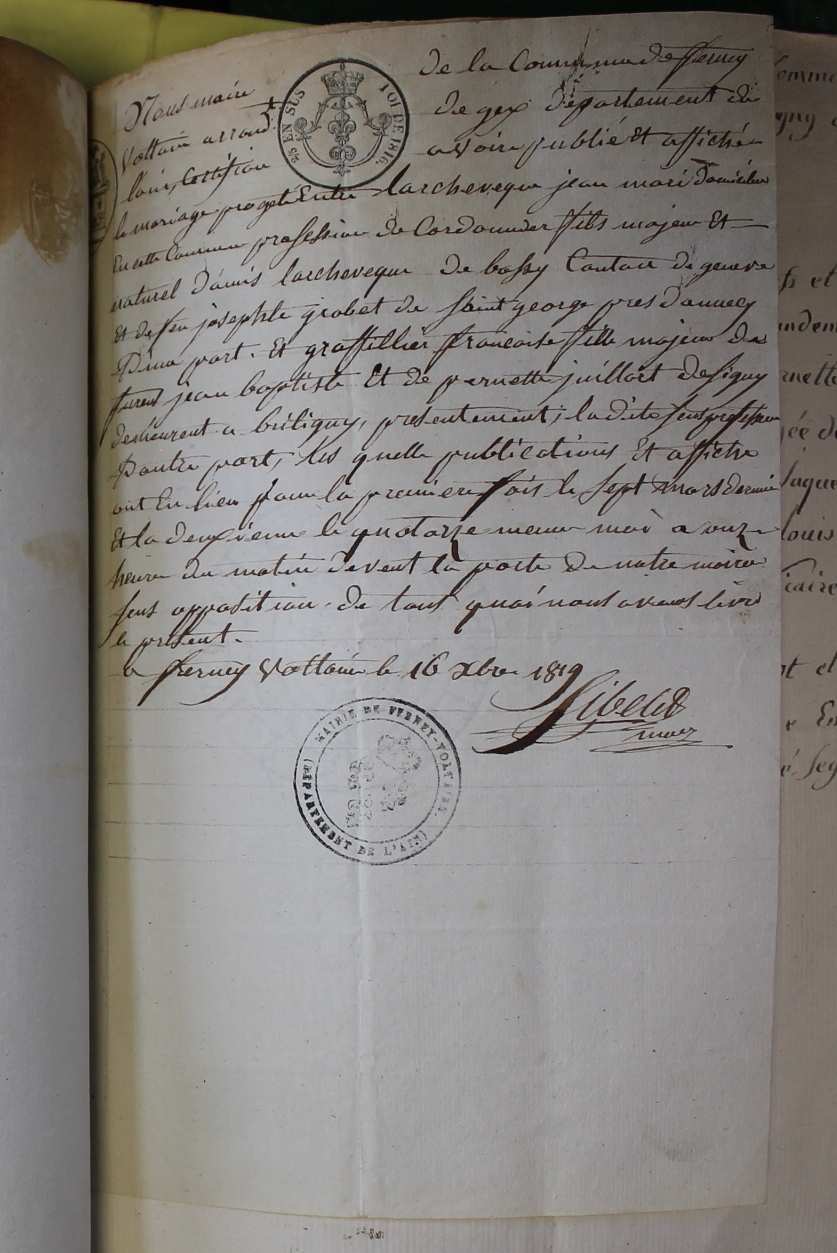 Nous maire de la Commune de fferney
Voltaire arrond.t de gex département de
l'ain, Certifion avoir publié et affiché
le mariage projet Entre larcheveque jean mari domicilier
En cette Commune profession de Cordonnier ffils majeur Et
naturel D'amis larcheveque de bossy Canton de geneve
Et de feu josephte grobet de Saint george pres dannecy
D'une part. Et graffillier francoise ffille majeur de
jean baptiste Et de pernette juillart de
demeurent a presentement, la dite sens profession
D'autre part, les quelle publications Et affiche
ont Eu lieu pour la premiere fois le Sept mars dernier
Et la deuxieme le quatorze meme moi a onze
heure du matin devent la porte de notre mairie
sens opposition. de tout quoi nous avons livré
le présent.
a fferney Voltaire le 16 xbre 1819
maire
25 EN SUS
LOI DE 1816.
MAIRIE DE FERNEY-VOLTAIRE.
(DÉPARTEMENT DE L'AIN)